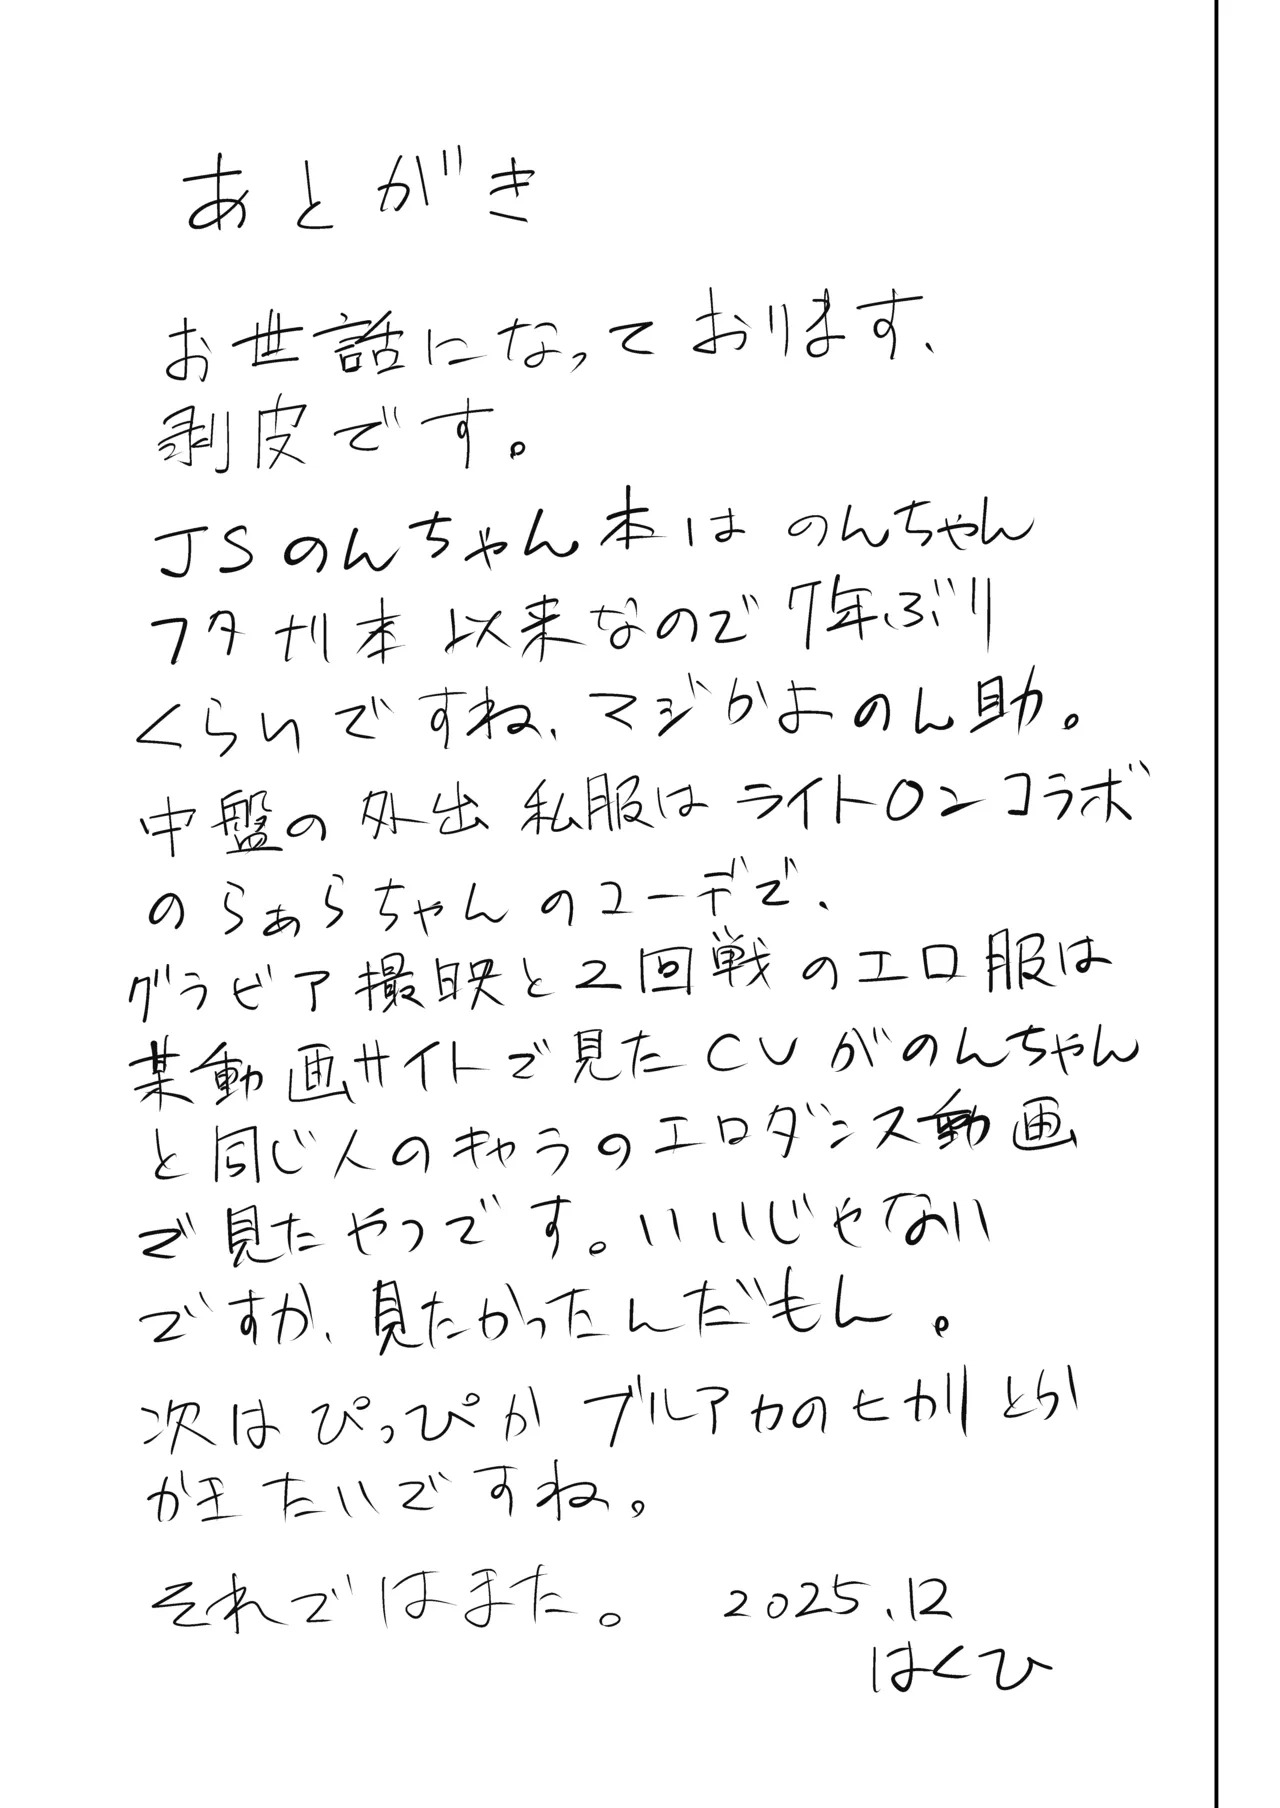 あとがき
お世話になっております、
剥皮です。
JSのんちゃん本はのんちゃん
フタナリ本以来なので7年ぶり
くらいですね、マジかよのん助。
中盤の外出私服はライト〇ンコラボ
のらぁらちゃんのコーデで、
グラビア撮映と2回戦のエロ服は
某動画サイトで見たCVがのんちゃん
と同じ人のキャラのエロダンス動画
で見たやつです。いいじゃない
ですか、見たかったんだもん。
次はぴっぴかブルアカのヒカリとか
がまたいですね。
それではまた。 2025.12
はくひ